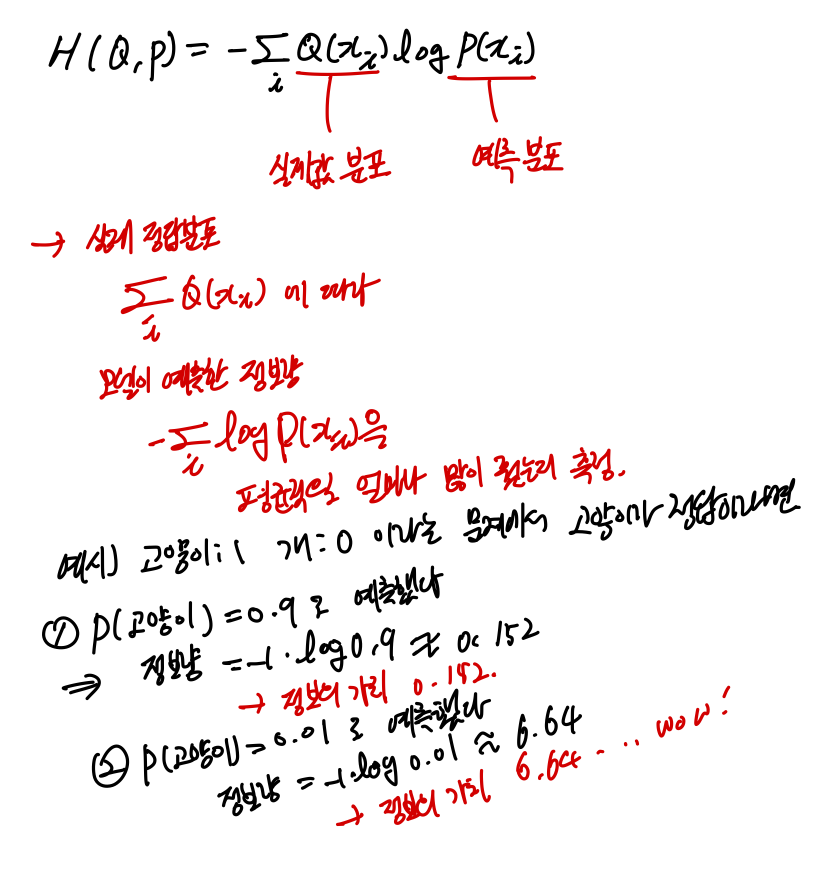 H(Q,P) = -∑_i Q(x_i) log P(x_i)
실제값 분포 예측 분포
→ 실제 정답분포
∑_i Q(x_i) 에 따라
모델이 예측한 정보량
-∑_i log P(x_i)을
평균적으로 얼마나 많이 잃는지 측정.
예시) 고양이:1 개:0 이라는 문제에서 고양이가 정답이라면
① P(고양이) = 0.9 로 예측했다
⇒ 정보량 = -1·log0.9 ≈ 0.152
→ 정보의 가치 0.152.
② P(고양이) = 0.01 로 예측했다
정보량 = -1·log 0.01 ≈ 6.64
→ 정보의 가치 6.64 ... wow!